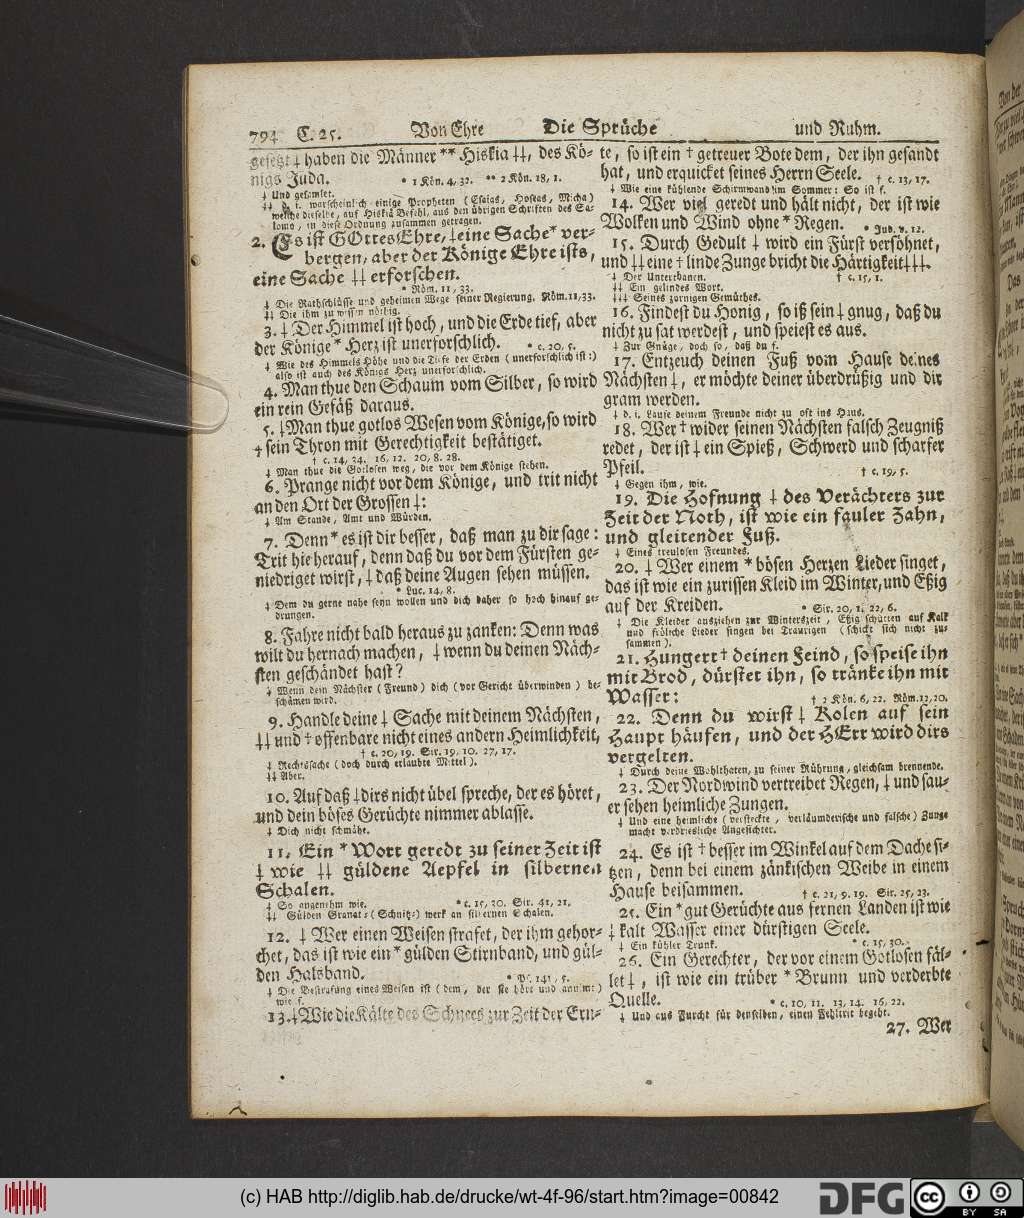 794 C. 25. Von Ehre Die Sprüche und Ruhm.
gesetzt ‡ haben die Männer ** Hiskia ‡‡, des Kö-
nigs Juda. * 1 Kön. 4, 32. ** 2 Kön. 18, 1.
‡ Und gesamlet.
‡‡ d. i. warscheinlich einige Propheten (Esaias, Hoseas, Micha)
welche dieselbe, auf Hiskiä Befehl, aus den übrigen Schriften des Sa-
lomo, in diese Ordnung zusammen getragen.
2. Es ist GOttes Ehre, ‡ eine Sache * ver-
bergen, aber der Könige Ehre ists,
eine Sache ‡‡ erforschen.
* Röm. 11, 33.
‡ Die Rathschlüsse und geheimen Wege seiner Regierung. Röm. 11, 33.
‡‡ Die ihm zu wissen nöthig.
3. ‡ Der Himmel ist hoch, und die Erde tief, aber
der Könige * Herz ist unerforschlich. * c. 20, 5.
‡ Wie des Himmels Höhe und die Tiefe der Erden (unerforschlich ist:)
also ist auch des Königs Herz unerforschlich.
4. Man thue den Schaum vom Silber, so wird
ein rein Gefäß daraus.
5. ‡ Man thue gotlos Wesen vom Könige, so wird
† sein Thron mit Gerechtigkeit bestätiget.
† c. 14, 34. 16, 12. 20, 8. 28.
‡ Man thue die Gotlosen weg, die vor dem Könige stehen.
6. Prange nicht vor dem Könige, und trit nicht
an den Ort der Grossen ‡:
‡ Am Stande, Amt und Würden.
7. Denn * es ist dir besser, daß man zu dir sage:
Trit hie herauf, denn daß du vor dem Fürsten ge-
niedriget wirst, ‡ daß deine Augen sehen müssen.
* Luc. 14, 8.
‡ Dem du gerne nahe seyn wollen und dich daher so hoch hinauf ge-
drungen.
8. Fahre nicht bald heraus zu zanken: Denn was
wilt du hernach machen, ‡ wenn du deinen Näch-
sten geschändet hast?
‡ Wenn dein Nächster (Freund) dich (vor Gericht überwinden) be-
schämen wird.
9. Handle deine ‡ Sache mit deinem Nächsten,
‡‡ und † offenbare nicht eines andern Heimlichkeit,
† c. 20, 19. Sir. 19, 10. 27, 17.
‡ Rechtssache (doch durch erlaubte Mittel).
‡‡ Aber.
10. Auf daß ‡ dirs nicht übel spreche, der es höret,
und dein böses Gerüchte nimmer ablasse.
‡ Dich nicht schmähe.
11. Ein * Wort geredt zu seiner Zeit ist
‡ wie ‡‡ güldene Aepfel in silbernen
Schalen.
‡ So angenehm wie. * c. 15, 30. Sir. 41, 21.
‡‡ Gülden Granat=(Schnitz=) werk an silbernen Schalen.
12. ‡ Wer einen Weisen strafet, der ihm gehor-
chet, das ist wie ein * gülden Stirnband, und gül-
den Halsband. * Ps. 141, 5.
‡ Die Bestrafung eines Weisen ist (dem, der sie hört und annimt)
wie s.
13. ‡ Wie die Kälte des Schnees zur Zeit der Ern-
te, so ist ein † getreuer Bote dem, der ihn gesandt
hat, und erquicket seines Herrn Seele. † c. 13, 17.
‡ Wie eine kühlende Schirmwand im Sommer: So ist s.
14. Wer viel geredt und hält nicht, der ist wie
Wolken und Wind ohne * Regen. * Jud. v. 12.
15. Durch Gedult ‡ wird ein Fürst versöhnet,
und ‡‡ eine † linde Zunge bricht die Härtigkeit ‡‡‡.
‡ Der Unterthanen. † c. 15, 1.
‡‡ Ein gelindes Wort.
‡‡‡ Seines zornigen Gemüthes.
16. Findest du Honig, so iß sein ‡ gnug, daß du
nicht zu sat werdest, und speiest es aus.
‡ Zur Gnüge, doch so, daß du s.
17. Entzeuch deinen Fuß vom Hause deines
Nächsten ‡, er möchte deiner überdrüßig und dir
gram werden.
‡ d. i. Laufe deinem Freunde nicht zu oft ins Haus.
18. Wer † wider seinen Nächsten falsch Zeugniß
redet, der ist ‡ ein Spieß, Schwerd und scharfer
Pfeil. † c. 19, 5.
‡ Gegen ihm, wie.
19. Die Hofnung ‡ des Verächters zur
Zeit der Noth, ist wie ein fauler Zahn,
und gleitender Fuß.
‡ Eines treulosen Freundes.
20. ‡ Wer einem * bösen Herzen Lieder singet,
das ist wie ein zurissen Kleid im Winter, und Eßig
auf der Kreiden. * Sir. 20, 1. 22, 6.
‡ Die Kleider ausziehen zur Winterszeit, Eßig schütten auf Kalk
und fröliche Lieder singen bei Traurigen (schickt sich nicht zu-
sammen).
21. Hungert † deinen Feind, so speise ihn
mit Brod, dürstet ihn, so tränke ihn mit
Wasser: † 2 Kön. 6, 22. Röm. 12, 20.
22. Denn du wirst ‡ Kolen auf sein
Haupt häufen, und der HErr wird dirs
vergelten.
‡ Durch deine Wohlthaten, zu seiner Rührung, gleichsam brennende.
23. Der Nordwind vertreibet Regen, ‡ und sau-
er sehen heimliche Zungen.
‡ Und eine heimliche (versteckte, verläumderische und falsche) Zunge
macht verdriesliche Angesichter.
24. Es ist † besser im Winkel auf dem Dache si-
tzen, denn bei einem zänkischen Weibe in einem
Hause beisammen. † c. 21, 9. 19. Sir. 25, 23.
25. Ein * gut Gerüchte aus fernen Landen ist wie
‡ kalt Wasser einer dürstigen Seele.
‡ Ein kühler Trunk. * c. 15, 30.
26. Ein Gerechter, der vor einem Gotlosen fäl-
let ‡, ist wie ein trüber * Brunn und verderbte
Quelle. * c. 10, 11. 13, 14. 16, 22.
‡ Und aus Furcht für denselben, einen Fehltrit begeht.
27. Wer
(c) HAB http://diglib.hab.de/drucke/wt-4f-96/start.htm?image=00842
DFG
cc BY SA